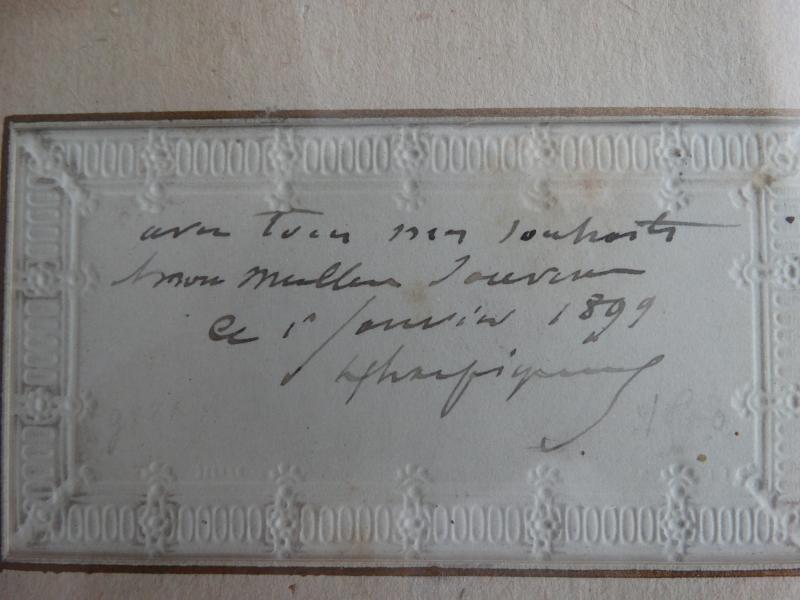 avec tous mes souhaits
& mon meilleur Souvenir
le 1r Janvier 1899